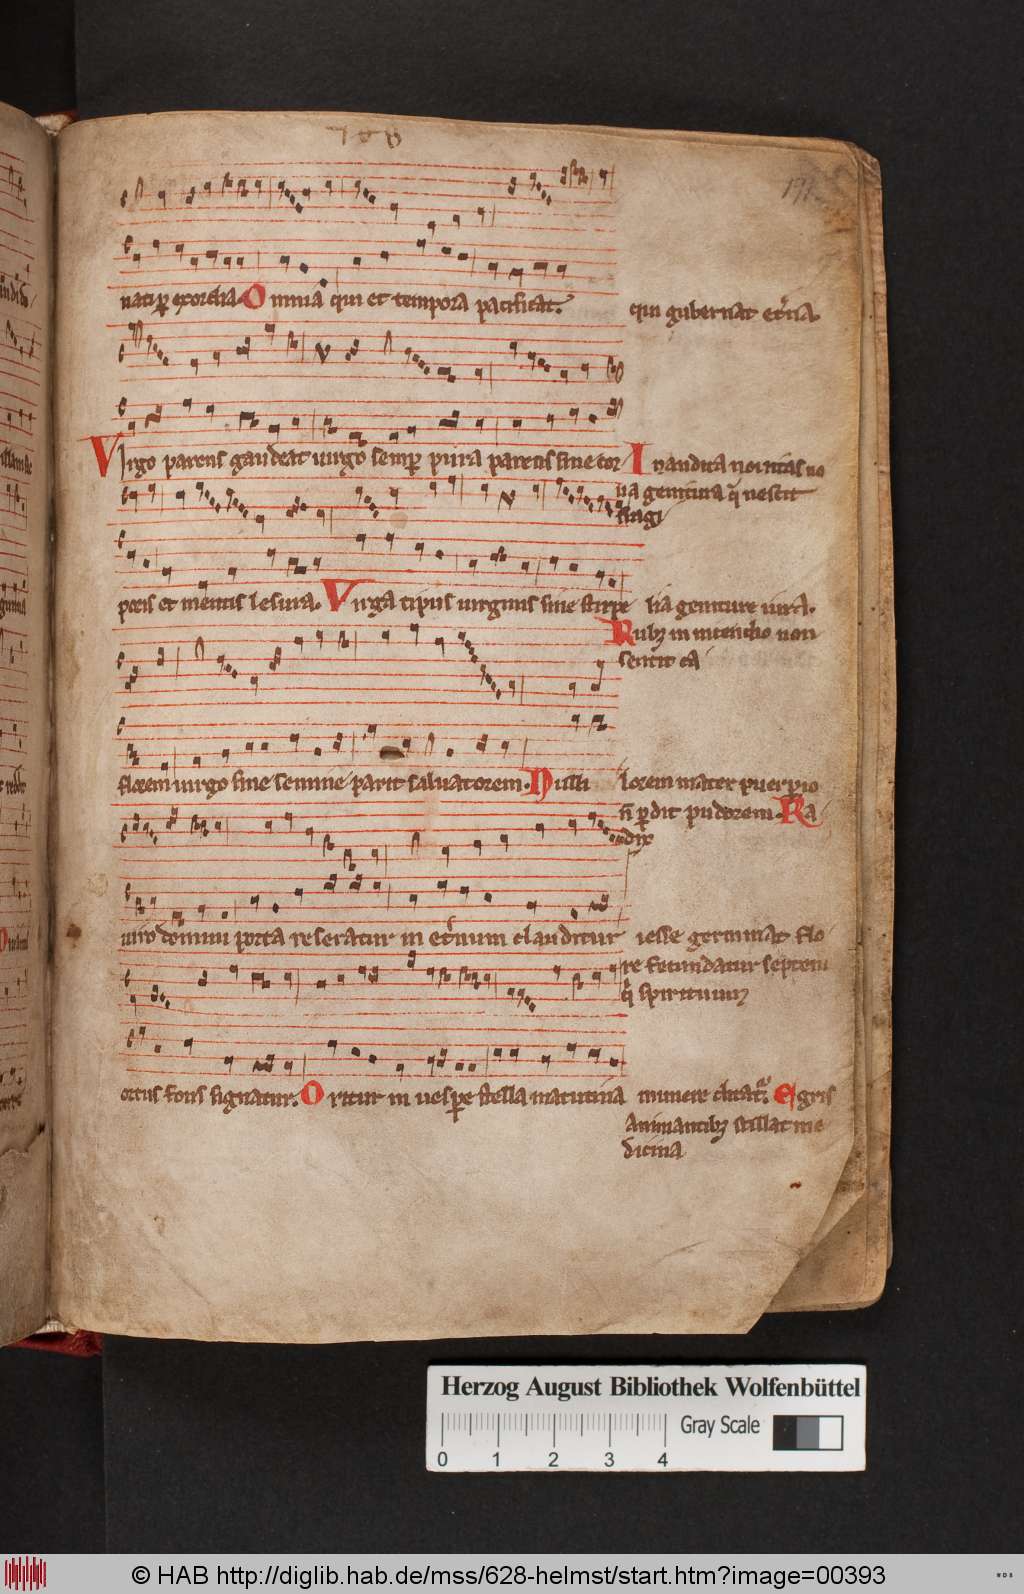 191
nati per exordia. Omnia qui et tempora pacificat. qui gubernat et'na.
Virgo parens gaudeat uirgo semp pura parens sine cor Inaudita nouitas no
ua genitura q nescit
frangi
poris et mentis lesura. Virga tipus uirginis sine stirpe lia geniture iura.
Rubus in incendio non
sentit ca
florem uirgo sine semine parit saluatorem. Nulli lorem mater puerperio
n perdit pudorem. Ra
dix
uiro domini porta reseratur in et'num clauditur iesse germinat flo
re fecundatur septem
q spirituum
ortus fons signatur. Oritur in uespe stella matutina munere ditat. Egris
animantibus stillat me
dicina
Herzog August Bibliothek Wolfenbüttel
Gray Scale
0 1 2 3 4
© HAB http://diglib.hab.de/mss/628-helmst/start.htm?image=00393